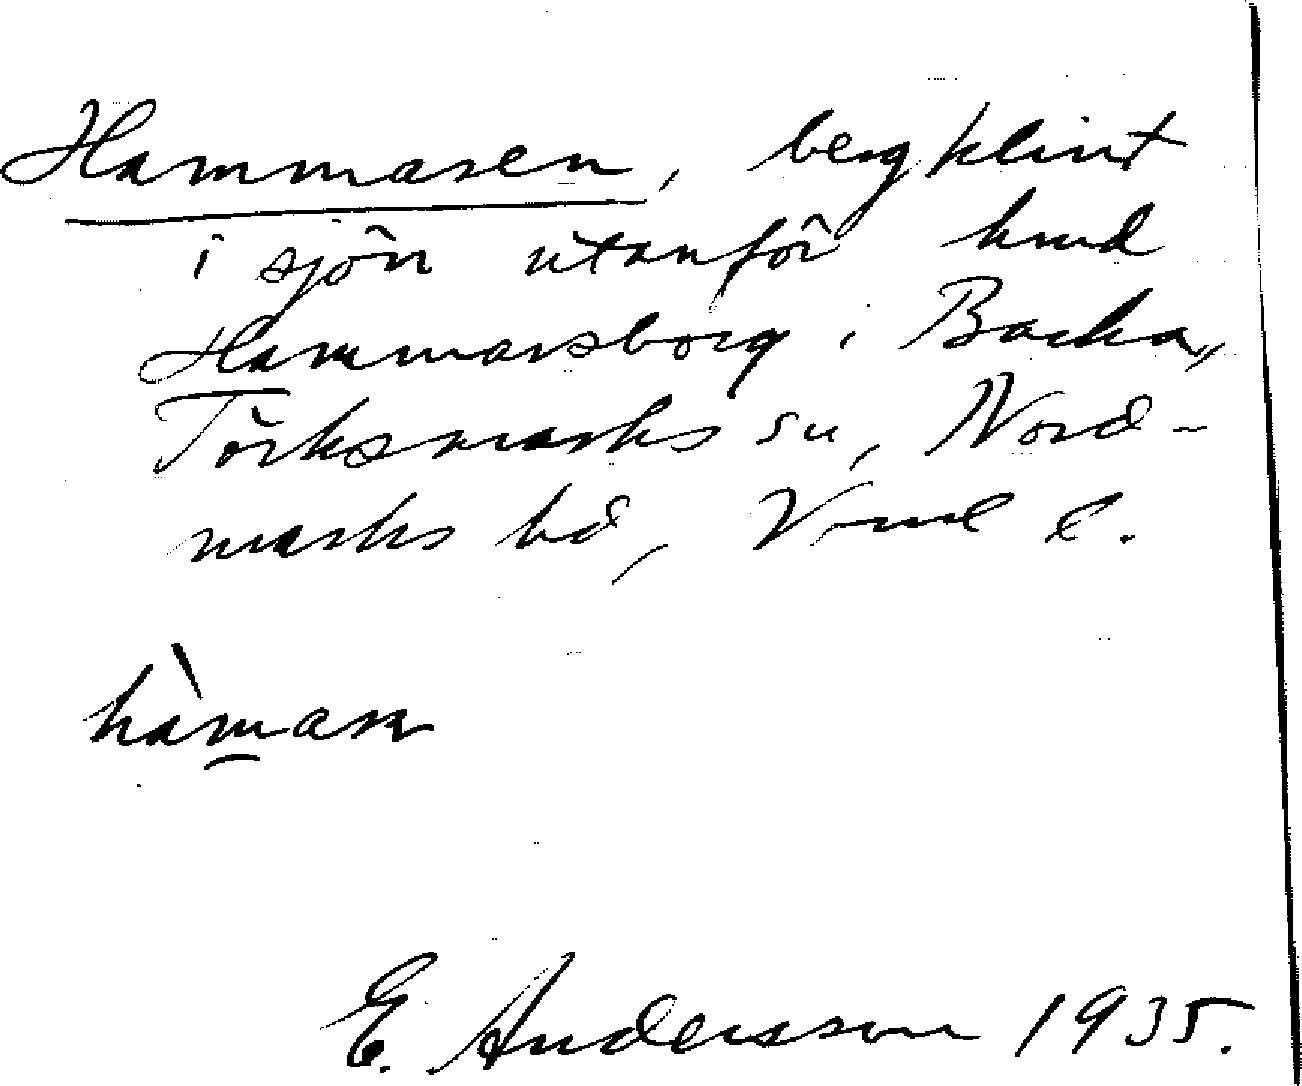 Hammaren, bergklint
i sjön utanför hmd
Hammarsborg i Backa,
Törksmarks sn, Nord-
marks hd, Vrml l.
hàmarn
E. Andersson 1935.